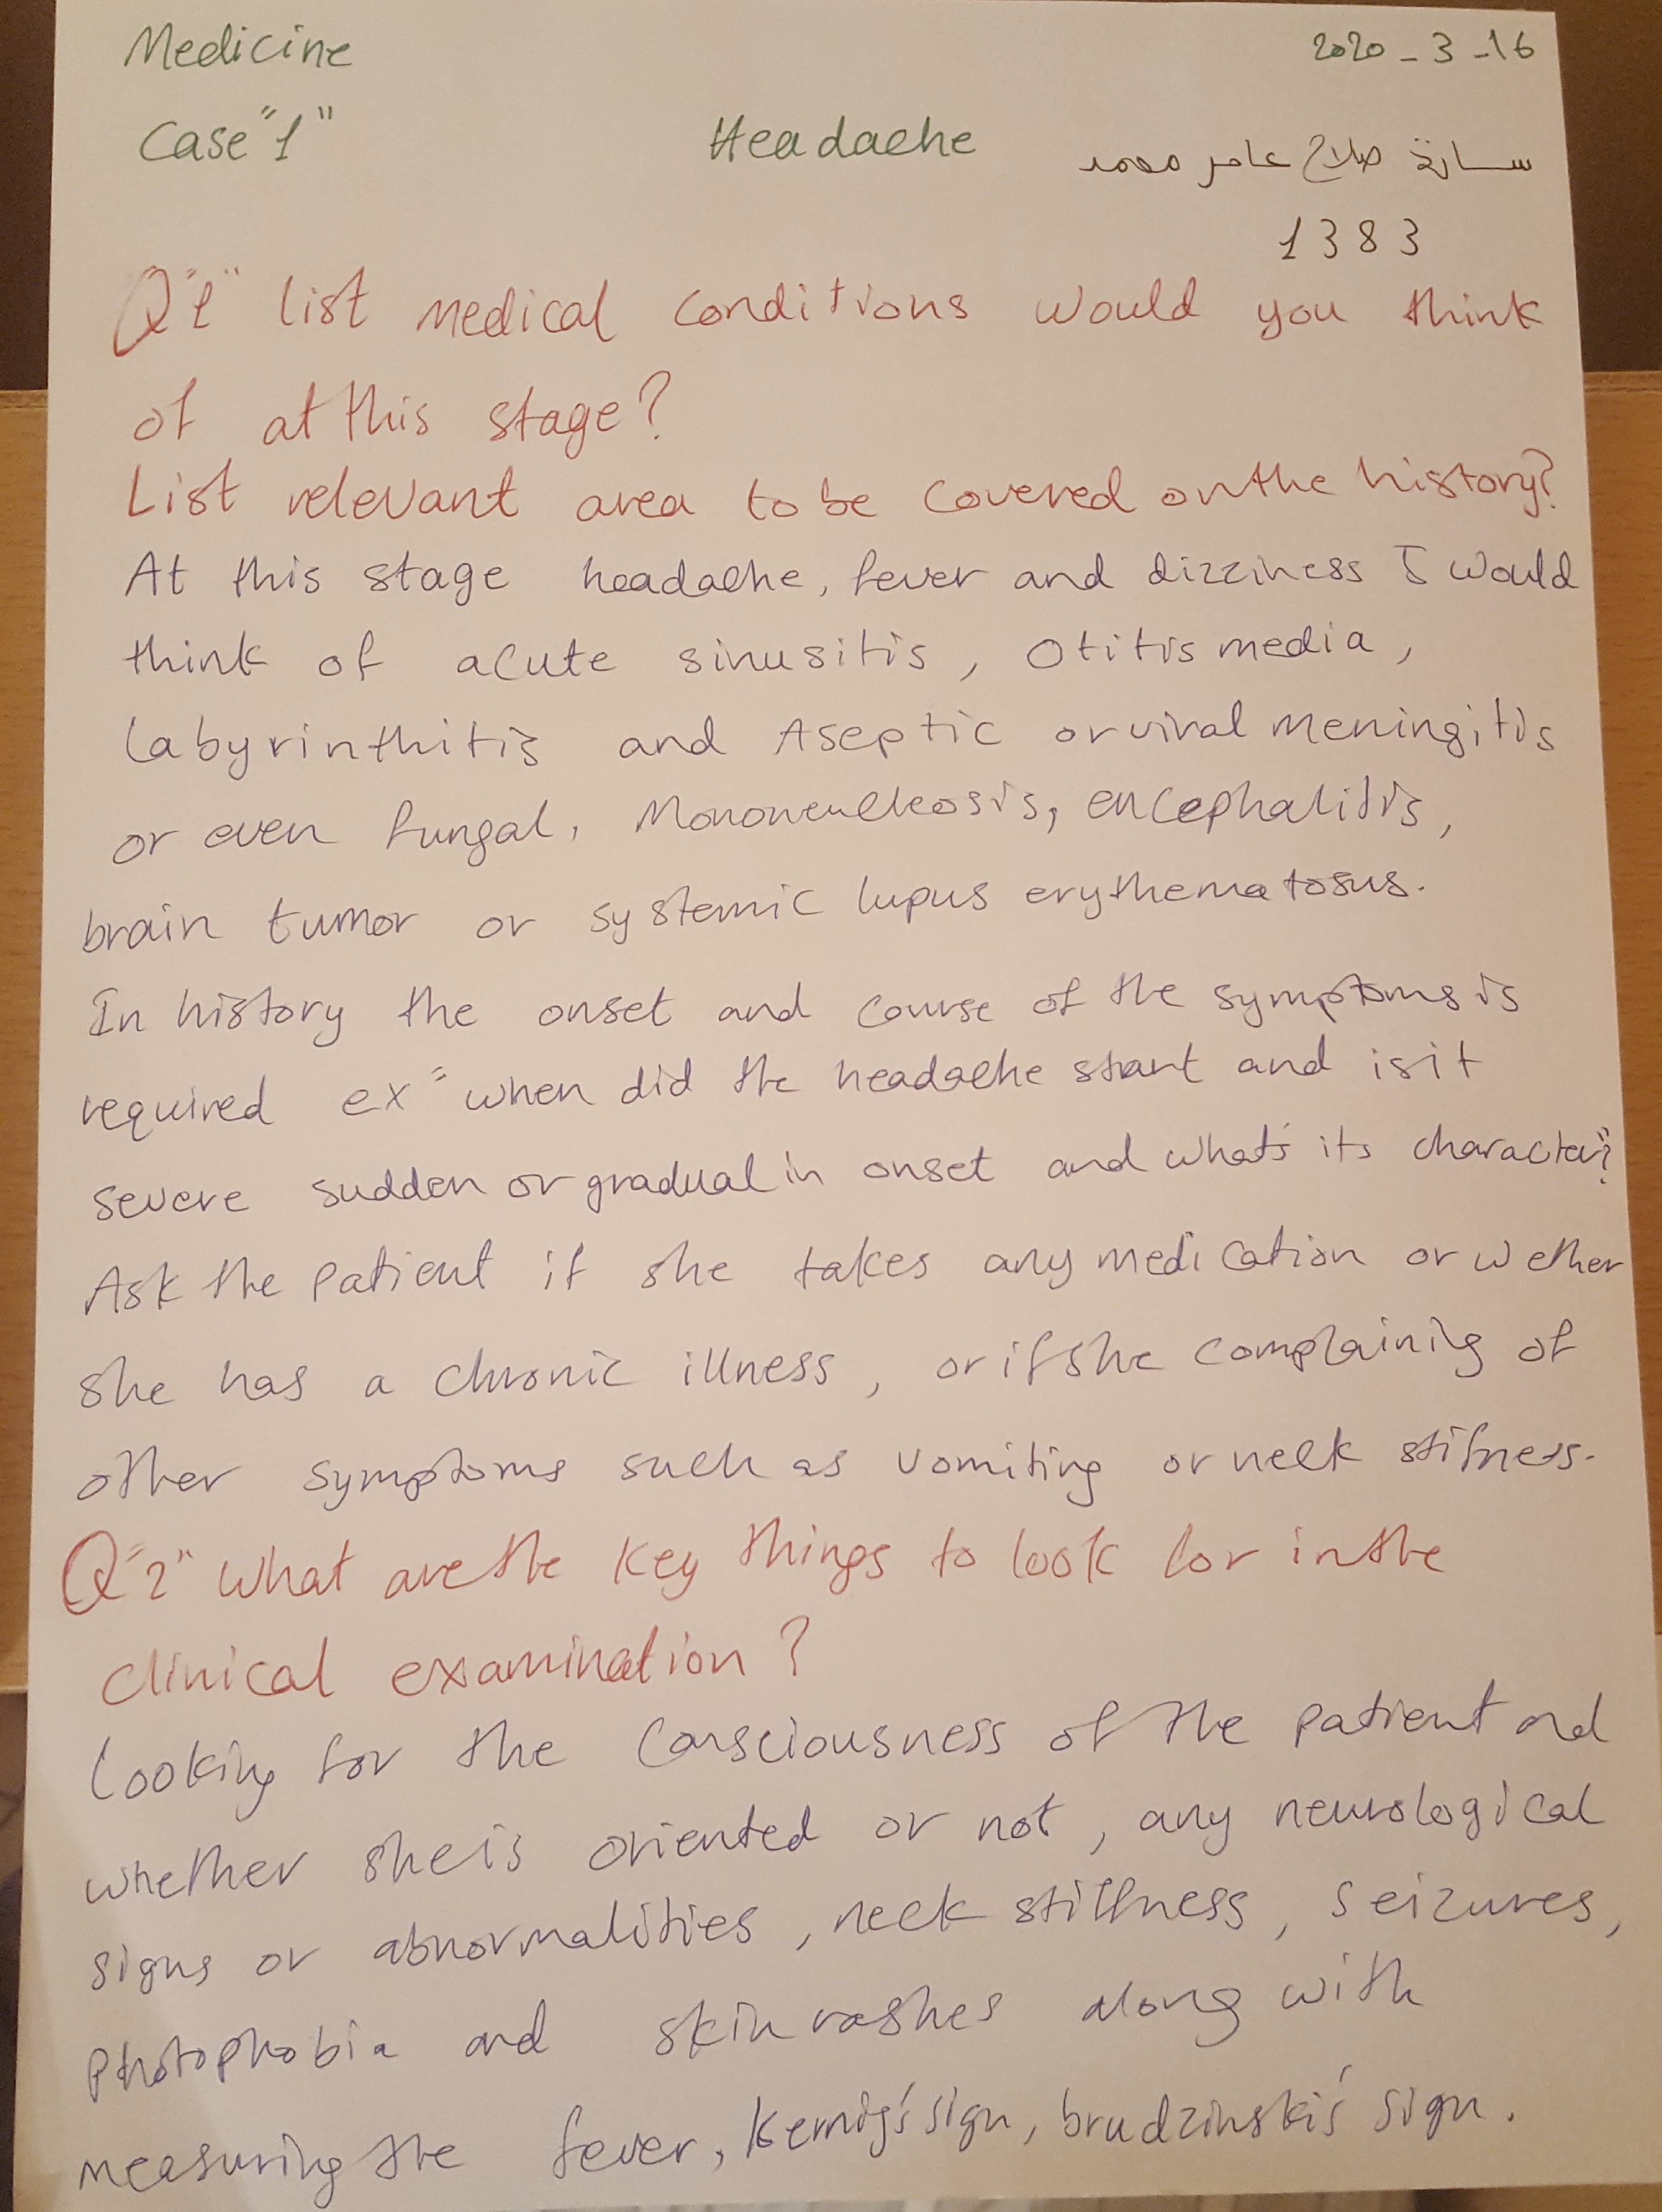 Medicine
2020-3-16
Case "1"
Headache
سارة صلاح عامر محمد
1383
Q"1" List medical conditions would you think
of at this stage?
List relevant area to be covered on the history?
At this stage headache, fever and dizziness I would
think of acute sinusitis, Otitis media,
Labyrinthitis and Aseptic or viral meningitis
or even fungal, encephalitis,
brain tumor or systemic lupus erythematosus.
In history the onset and course of the symptoms is
required ex "when did the headache start and is it
severe sudden or gradual in onset and what's its character"?
Ask the patient if she takes any medication or wether
she has a chronic illness, or if she complainig of
other symptoms such as vomiting or neck stifness.
Q"2" What are the key things to look for in the
clinical examination?
Looking for the consciousness of the patient and
whether she is oriented or not, any neurological
signs or abnormalities, neck stiffness, seizures,
photophobia and skin rashes along with
measuring the fever, Kernig's sign, brudzinski's sign.